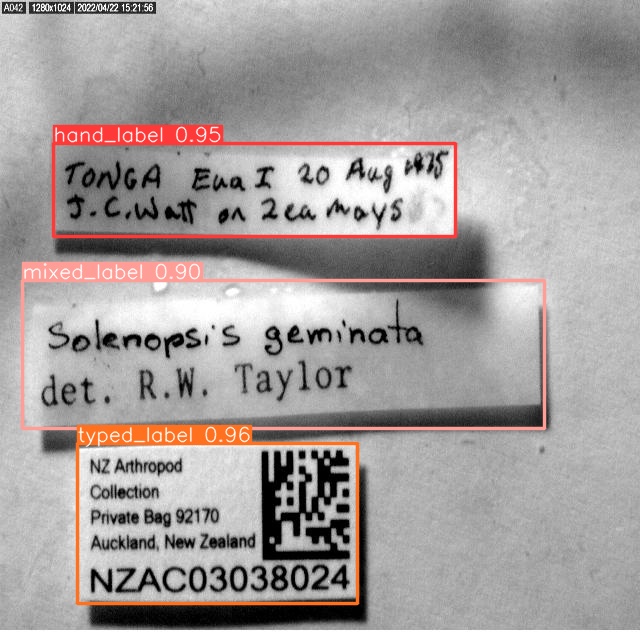 A042 1280x1024 2022/04/22 15:21:56
hand_label 0.95
TONGA Eua I 20 Aug 1975
J.C. Watt on Zea mays
mixed_label 0.90
Solenopsis geminata
det. R.W. Taylor
typed_label 0.96
NZ Arthropod
Collection
Private Bag 92170
Auckland, New Zealand
NZAC03038024